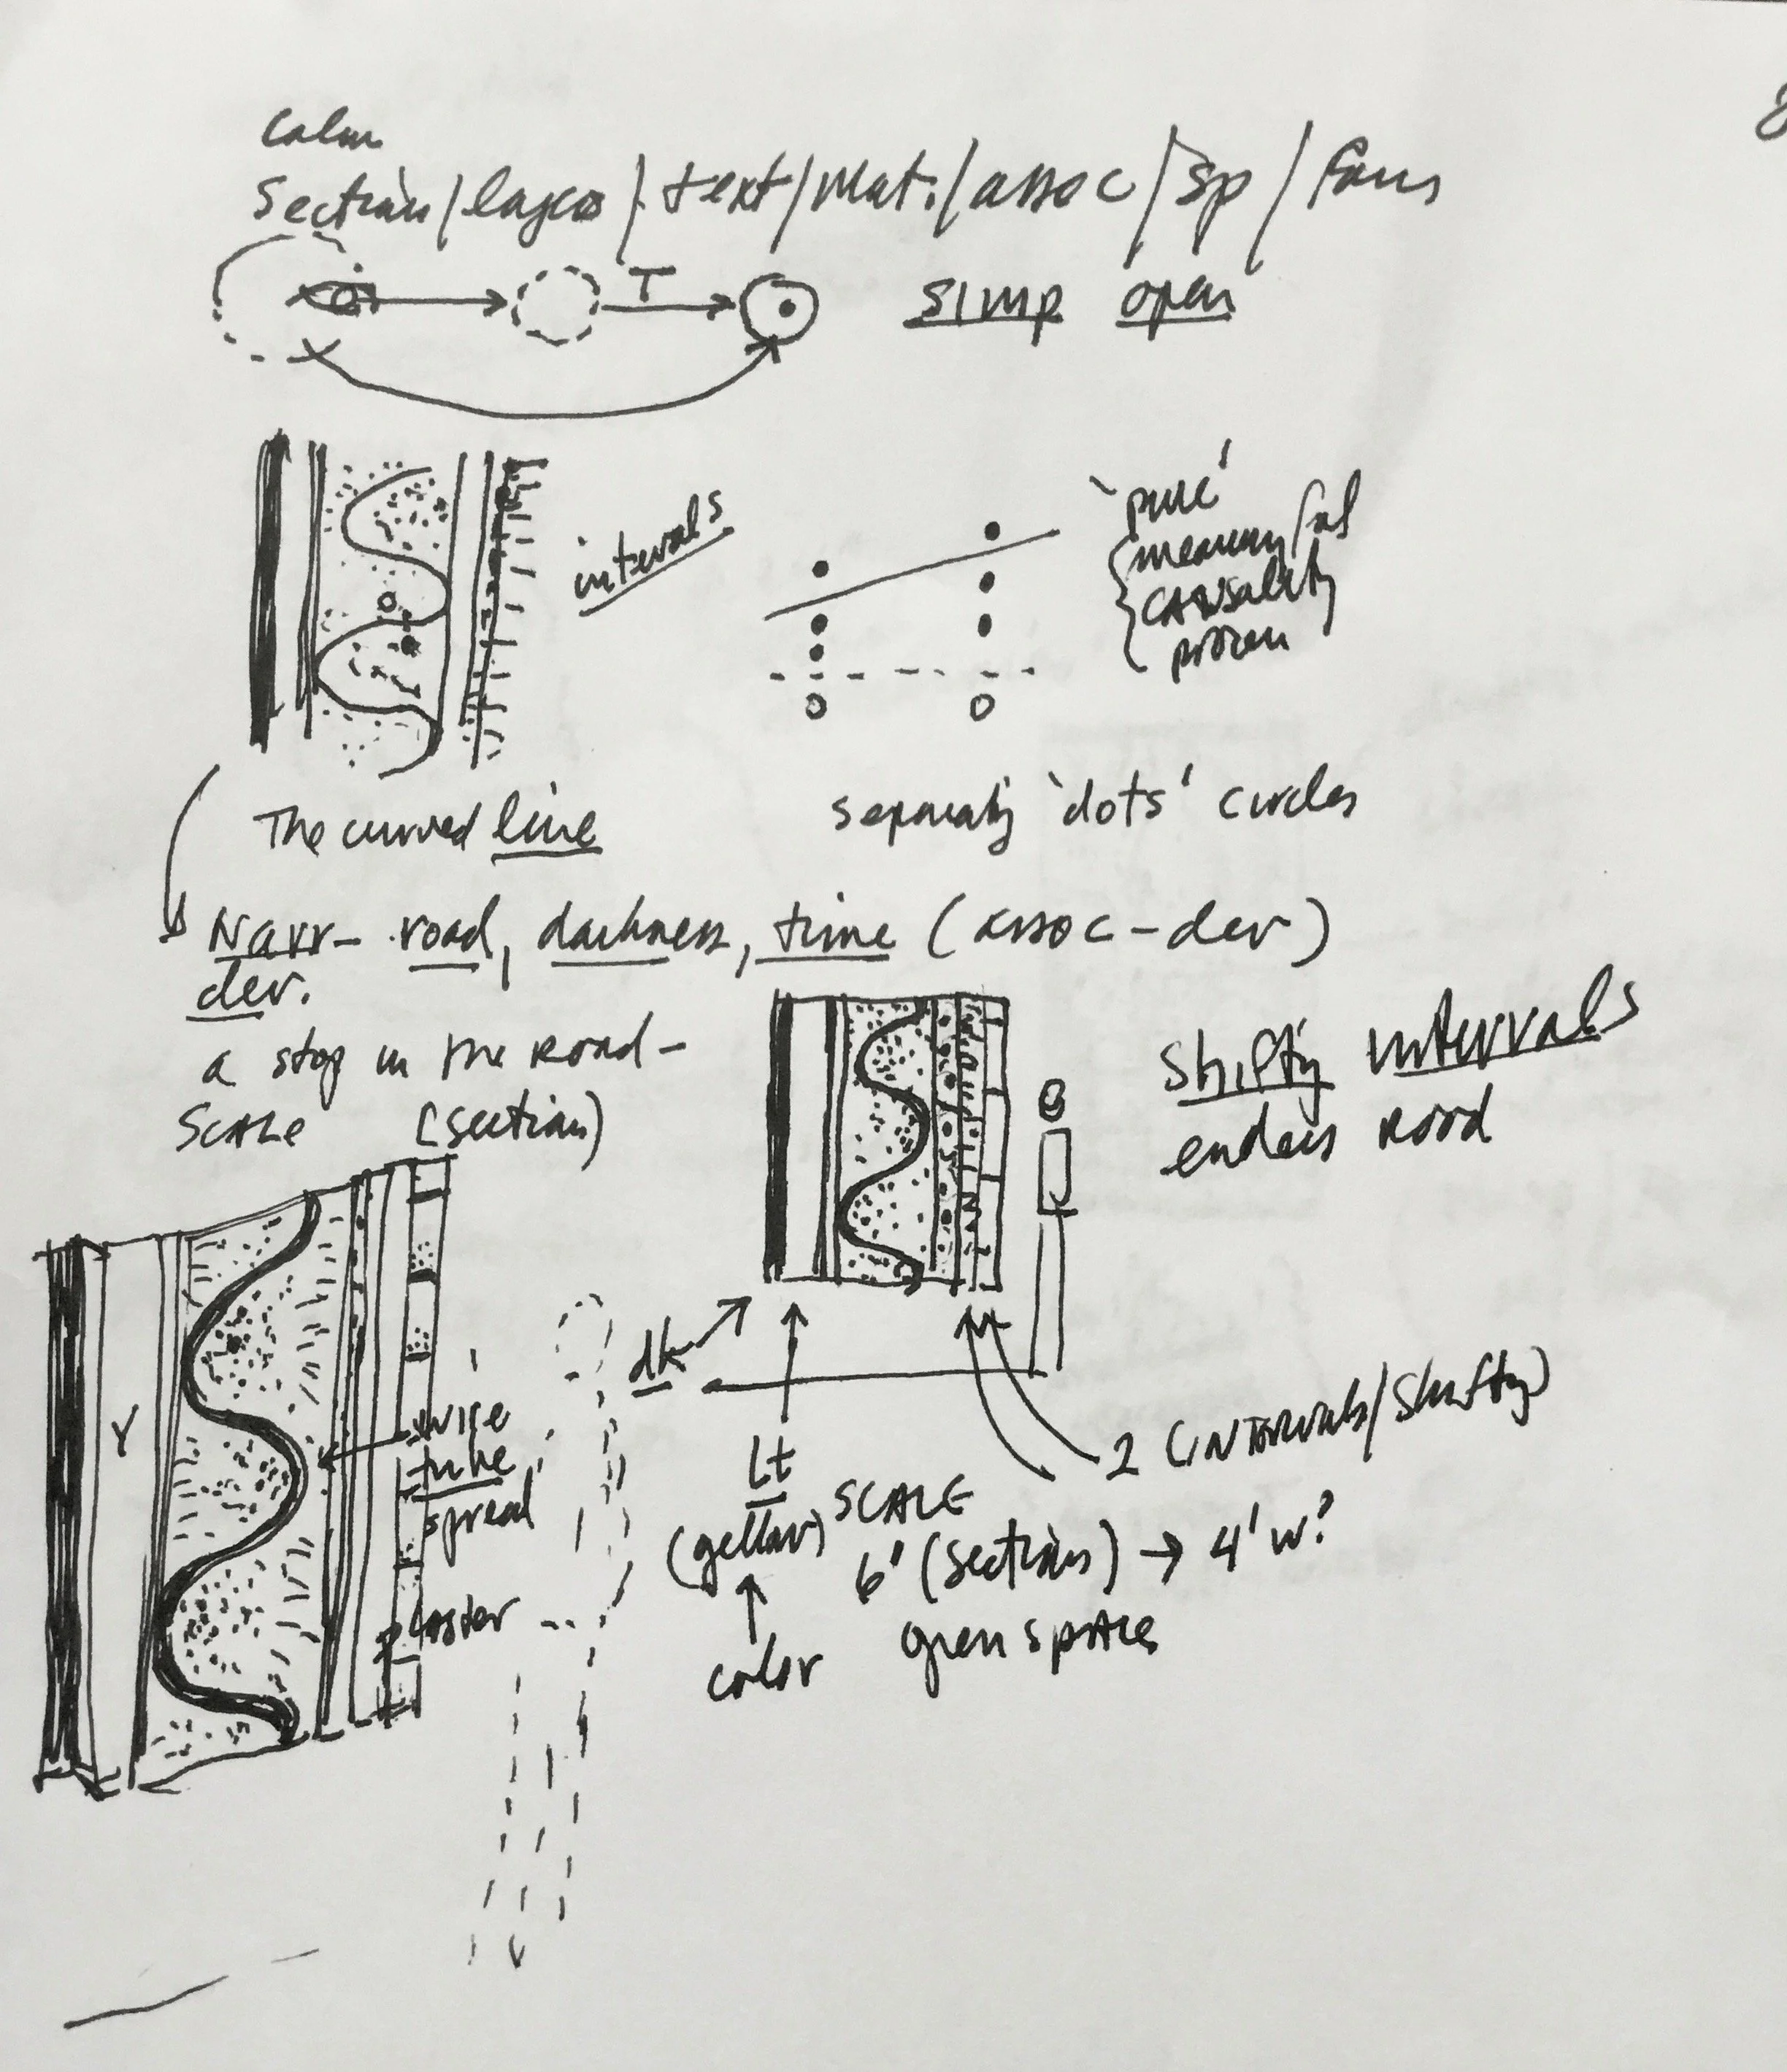 Calm
Section/layers/text/Mat./assoc/sp/
T
SIMP open
intervals
'pure'
meaning
CAUSality
The curved line
separatg 'dots' circles
Narr- road, darkness, time (assoc-dev)
dev.
a stop in the Road-
SCALE (section)
Shiftg intervals
endless Road
dk
Y
wire
tube
spread
plaster
Lt
color
2 (INTERVALS/Shiftg)
SCALE
6' (sections) → 4' w?
spaces